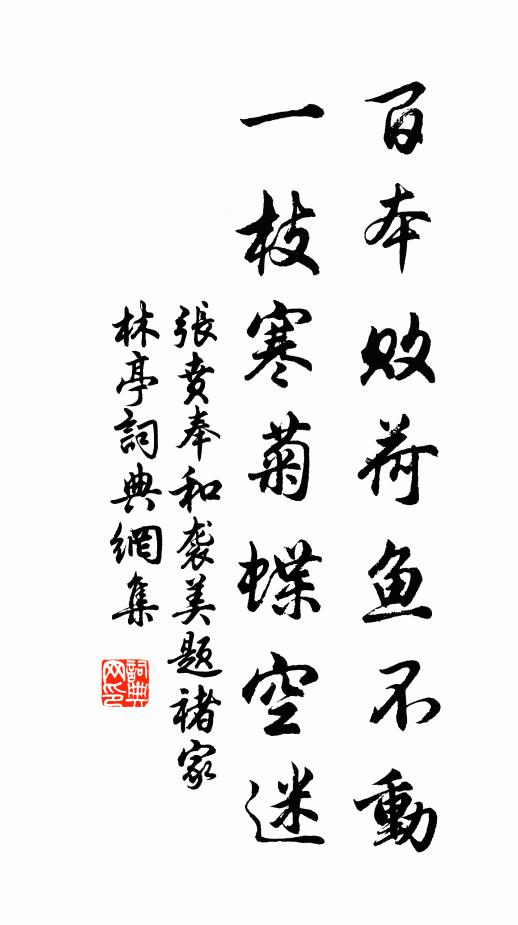 百本败荷鱼不動
一枝寒菊蝶空迷
張賁奉和袭美题褚家
林亭詞典網集
詞典
网印